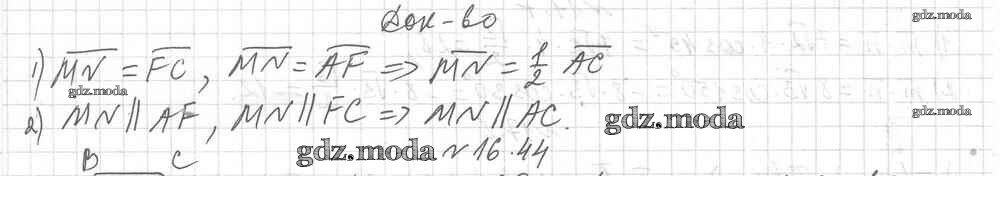 Док-во
gdz.moda
1) MN = FC, MN = AF => MN = 1/2 AC
gdz.moda
2) MN || AF, MN || FC => MN || AC.
gdz.moda
gdz.moda
B C
gdz.moda
N 16.44